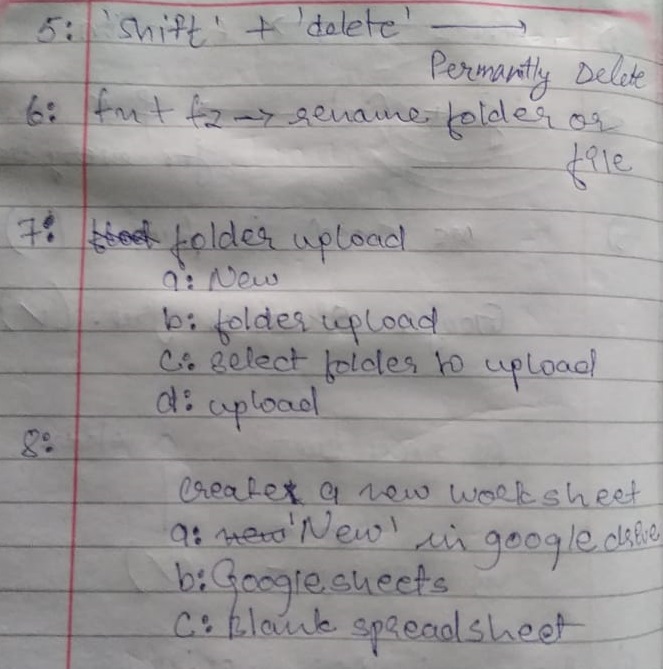 5: 'Shift' + 'delete' ⟶
Permantly Delete
6: fn + f2 → rename folder or
file
7: folder upload
a: New
b: folder upload
c: select folder to upload
d: upload
8:
Create a new worksheet
a: 'New' in google drive
b: Google sheets
c: blank spreadsheet